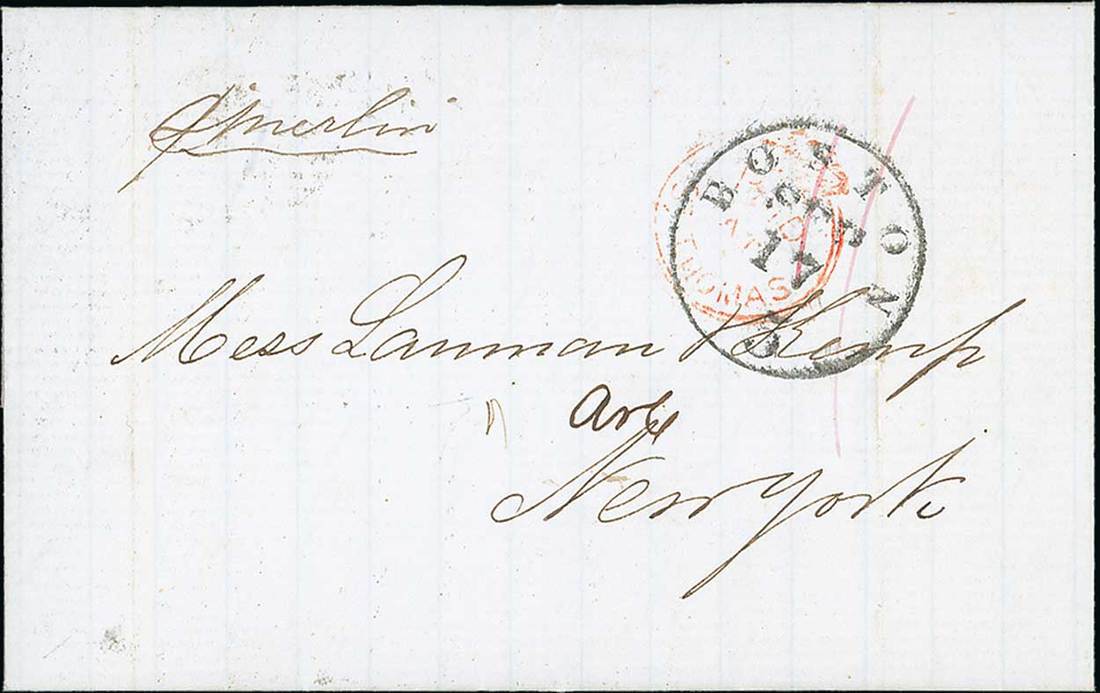 p Merlin
BOSTON
SEP
17
THOMAS
Mess Lanman & Kemp
New York